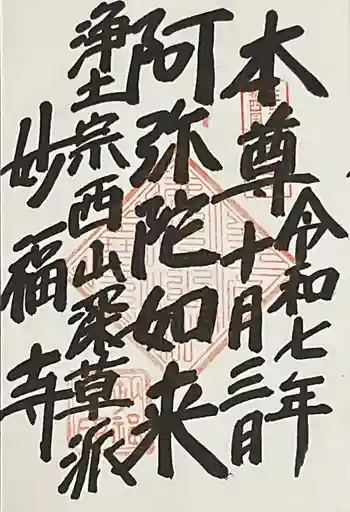 令和七年
十月三日
本尊
阿弥陀如来
浄土宗西山深草派
妙福寺